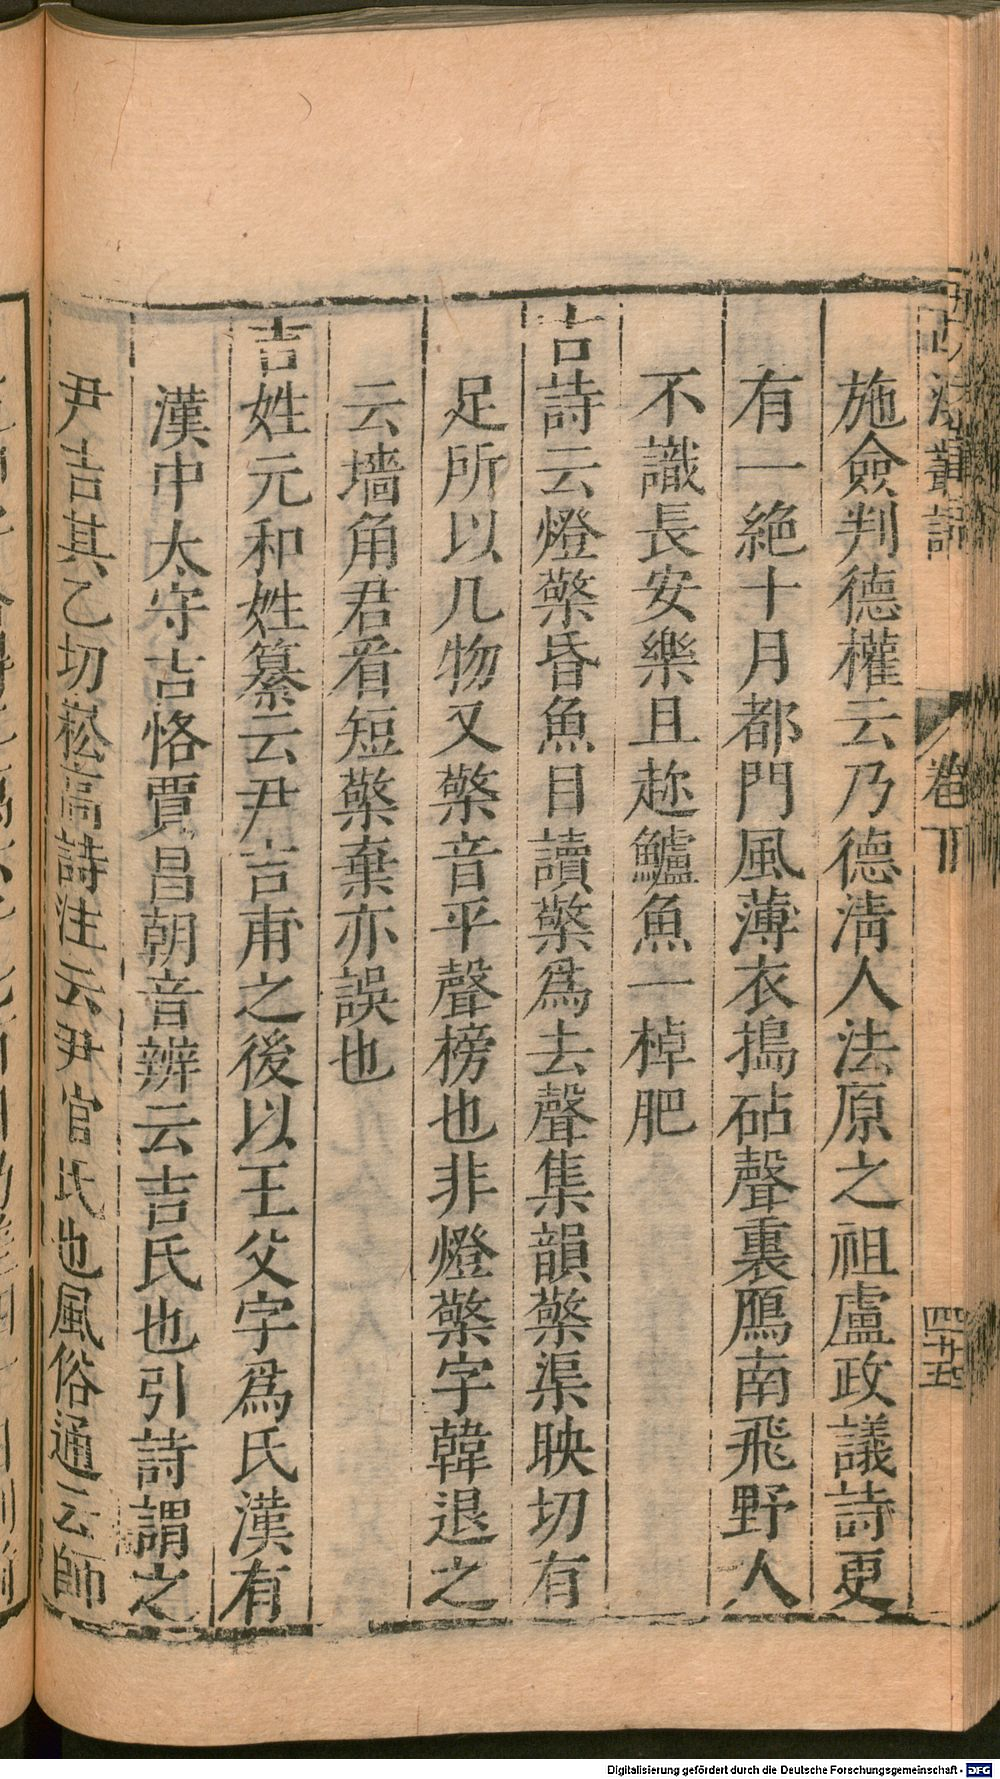 施僉判德權云乃德淸人法原之祖盧政議詩更
有一絶十月都門風薄衣搗砧聲裏鴈南飛野人
不識長安樂且趂鱸魚一棹肥
古詩云燈檠昏魚目讀檠爲去聲集韻檠渠映切有
足所以几物又檠音平聲榜也非燈檠字韓退之
云墻角君看短檠棄亦誤也
吉姓元和姓纂云尹吉甫之後以王父字爲氏漢有
漢中太守吉恪賈昌朝音辨云吉氏也引詩謂之
尹吉其乙切崧高詩注云尹官氏也風俗通云師
叢語
卷下
四十五
Digitalisierung gefördert durch die Deutsche Forschungsgemeinschaft - DFG